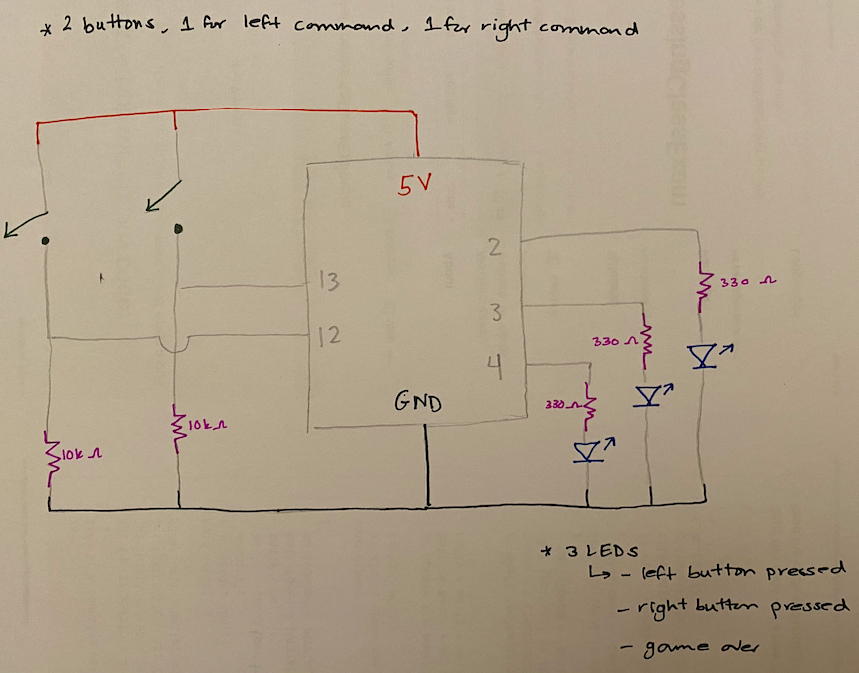 * 2 buttons, 1 for left command, 1 for right command
5V
2
330 Ω
13
3
330 Ω
12
4
GND
330 Ω
10k Ω
10k Ω
* 3 LEDs
↳ - left button pressed
- right button pressed
- game over